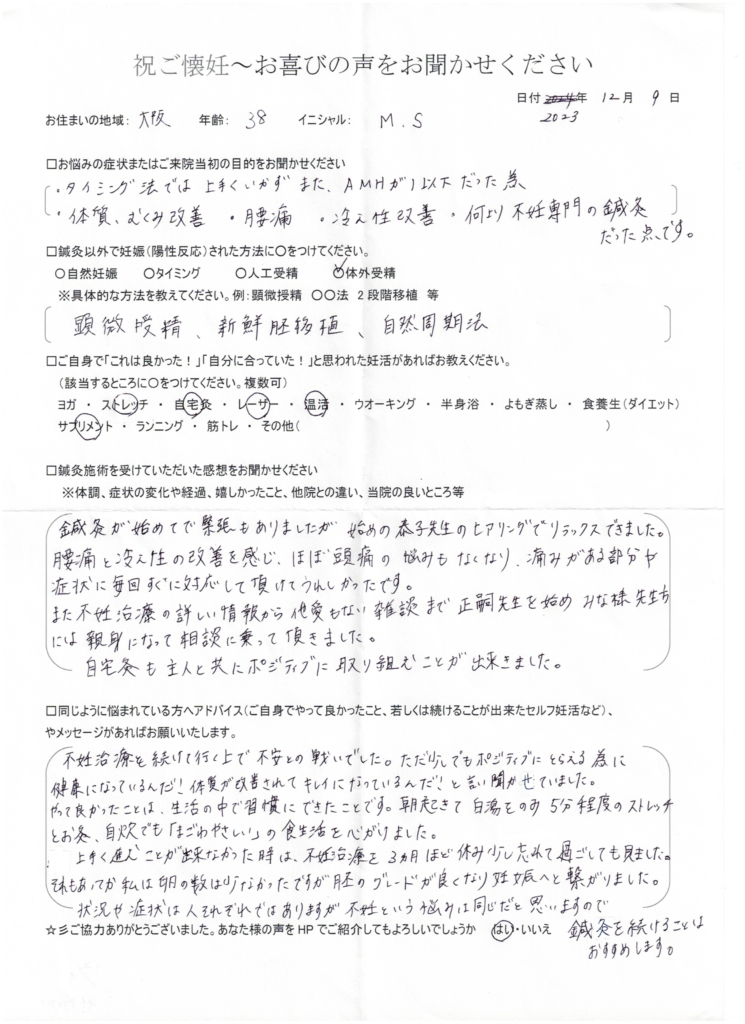 祝ご懐妊～お喜びの声をお聞かせください
日付 2024年 12月 9日
2023
お住まいの地域: 大阪 年齢: 38 イニシャル: M.S
□お悩みの症状またはご来院当初の目的をお聞かせください
・タイミング法では上手くいかず また、AMHが1以下だった為
・体質、むくみ改善 ・腰痛 ・冷え性改善 ・何より不妊専門の鍼灸
だった点です。
□鍼灸以外で妊娠(陽性反応)された方法に○をつけてください。
○自然妊娠 ○タイミング ○人工受精 ○体外受精
※具体的な方法を教えてください。例:顕微授精 ○○法 2段階移植 等
顕微授精、新鮮胚移植、自然周期法
□ご自身で「これは良かった！」「自分に合っていた！」と思われた妊活があればお教えください。
(該当するところに○をつけてください。複数可)
ヨガ ・ ストレッチ ・ 自宅灸 ・ レーザー ・ 温活 ・ ウオーキング ・ 半身浴 ・ よもぎ蒸し ・ 食養生(ダイエット)
サプリメント ・ ランニング ・ 筋トレ ・ その他( )
□鍼灸施術を受けていただいた感想をお聞かせください
※体調、症状の変化や経過、嬉しかったこと、他院との違い、当院の良いところ等
鍼灸が始めてで緊張もありましたが 始めの泰子先生のヒアリングでリラックスできました。
腰痛と冷え性の改善を感じ、ほぼ頭痛の悩みもなくなり、痛みがある部分や
症状に毎回すぐに対応して頂けてうれしかったです。
また不妊治療の詳しい情報から他愛もない雑談まで 正嗣先生を始め みな様先生方
には親身になって相談に乗って頂きました。
自宅灸も主人と共にポジティブに取り組むことが出来きました。
□同じように悩まれている方へアドバイス(ご自身でやって良かったこと、若しくは続けることが出来たセルフ妊活など)、
やメッセージがあればお願いいたします。
不妊治療を続けて行く上で不安との戦いでした。ただ少しでもポジティブにとらえる為に
健康になっているんだ！体質が改善されてキレイになっているんだ！と言い聞かせていました。
やって良かったことは、生活の中で習慣にできたことです。朝起きて白湯をのみ5分程度のストレッチ
とお灸、自炊でも「まごわやさしい」の食生活を心がけました。
上手く進むことが出来なかった時は、不妊治療を3カ月ほど休み少し忘れて過ごしても見ました。
それもあってか私は卵の数は少なかったですが胚のグレードが良くなり妊娠へと繋がりました。
状況や症状は人それぞれではありますが不妊という悩みは同じだと思いますので
☆彡ご協力ありがとうございました。あなた様の声をHPでご紹介してもよろしいでしょうか はい・いいえ 鍼灸を続けることは
おすすめします。